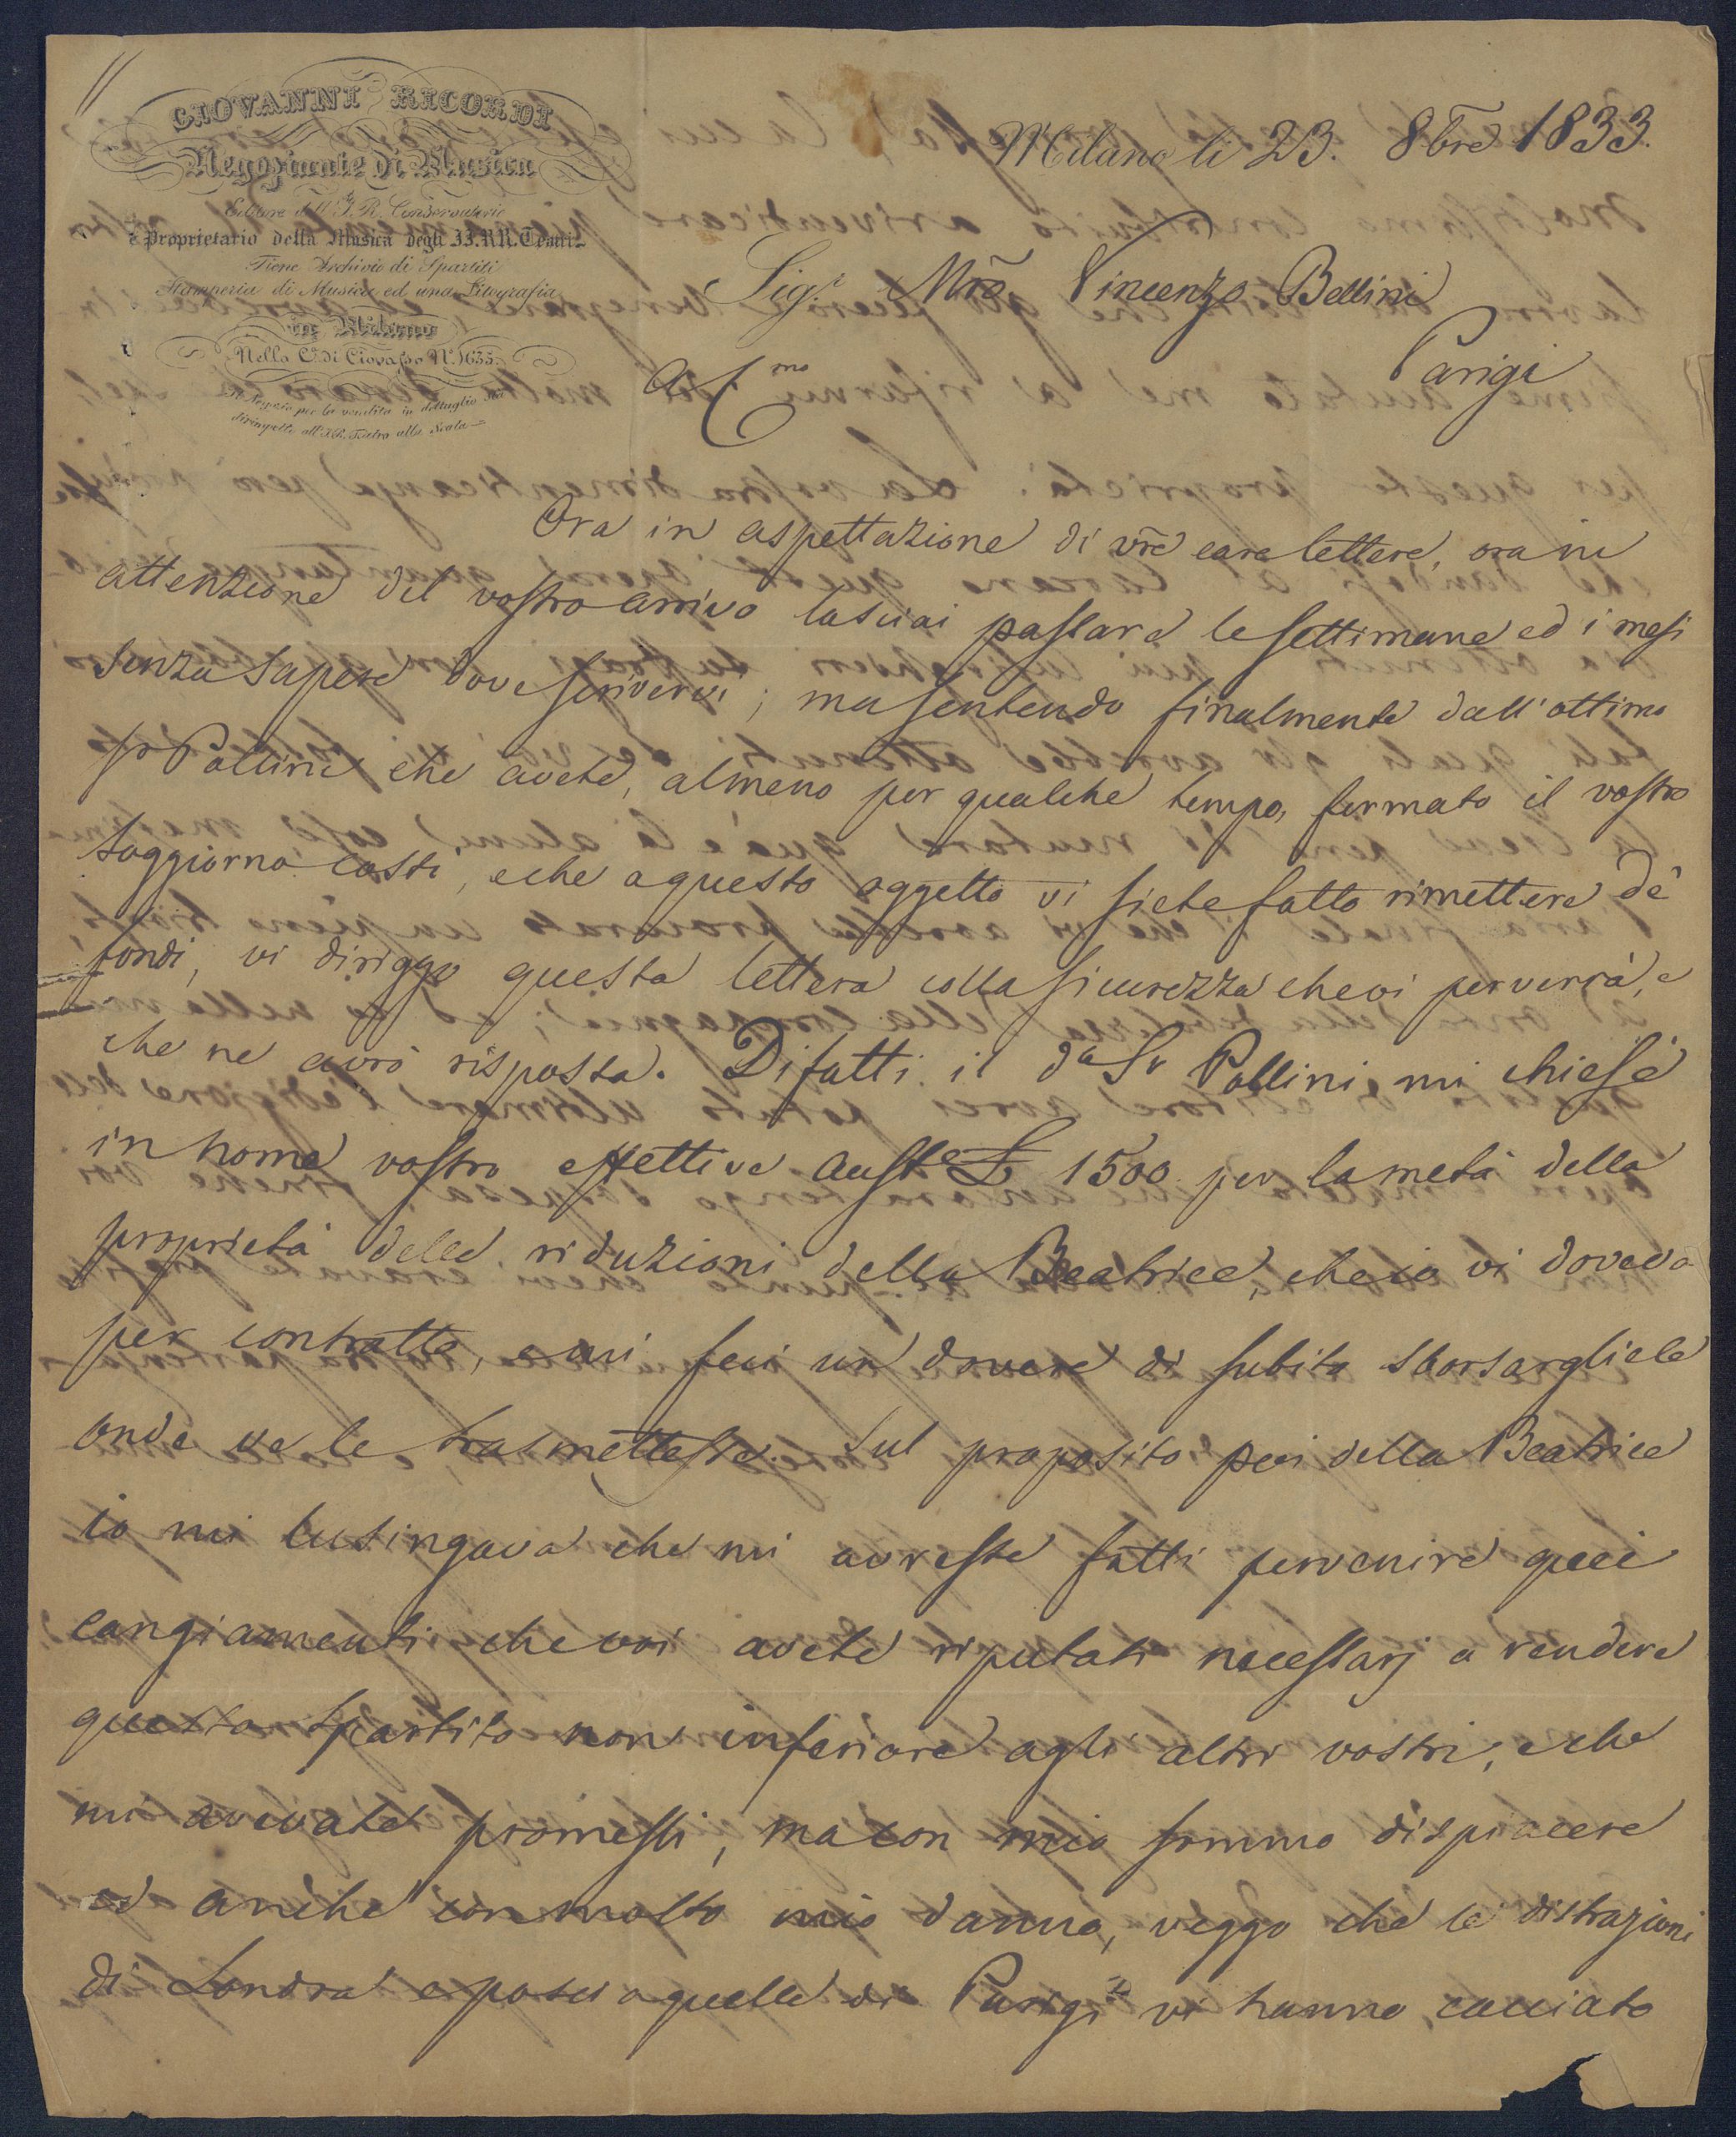 GIOVANNI RICORDI
Negoziante di Musica
Editore dell'I. R. Conservatorio
e Proprietario della Musica degli II. RR. Teatri
Tiene Archivio di Spartiti
Stamperia di Musica ed una Litografia
in Milano
Nella C.ª di Ciovasso N.º 1635.
Il Negozio per la vendita in dettaglio sta
dirimpetto all'I. R. Teatro alla Scala
Milano li 23. 8bre 1833.
Sig.r Mrõ Vincenzo Bellini
Parigi
A C.mo
Ora in aspettazione di vrẽ care lettere, ora in
attenzione del vostro arrivo lasciai passare le settimane ed i mesi
senza sapere dove scrivervi; ma sentendo finalmente dall'ottimo
Sr Pollini che avete, almeno per qualche tempo, fermato il vostro
soggiorno costì, e che a questo oggetto vi siete fatto rimettere de'
fondi, vi diriggo questa lettera colla sicurezza che vi perverrà, e
che ne avrò risposta. Difatti il do Sr Pollini mi chiese
in nome vostro effettive Auste L 1500 per la metà della
proprietà delle riduzioni della Beatrice, che io vi doveva
per contratto, e mi feci un dovere di subito sborsargliele
onde ve le trasmettesse. Sul proposito poi della Beatrice
io mi lusingava che mi avreste fatti pervenire quei
cangiamenti che voi avete riputati necessarj a rendere
questo spartito non inferiore agli altri vostri, e che
mi avevate promessi, ma con mio sommo dispiacere
ed anche con molto mio danno, veggo che le distrazioni
di Londra e poscia quelle di Parigi vi hanno cacciato